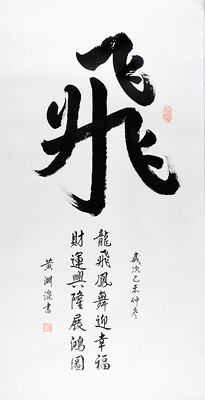 飛
歲次己未仲冬
龍飛鳳舞迎幸福
財運興隆展鴻圖
黃淵書